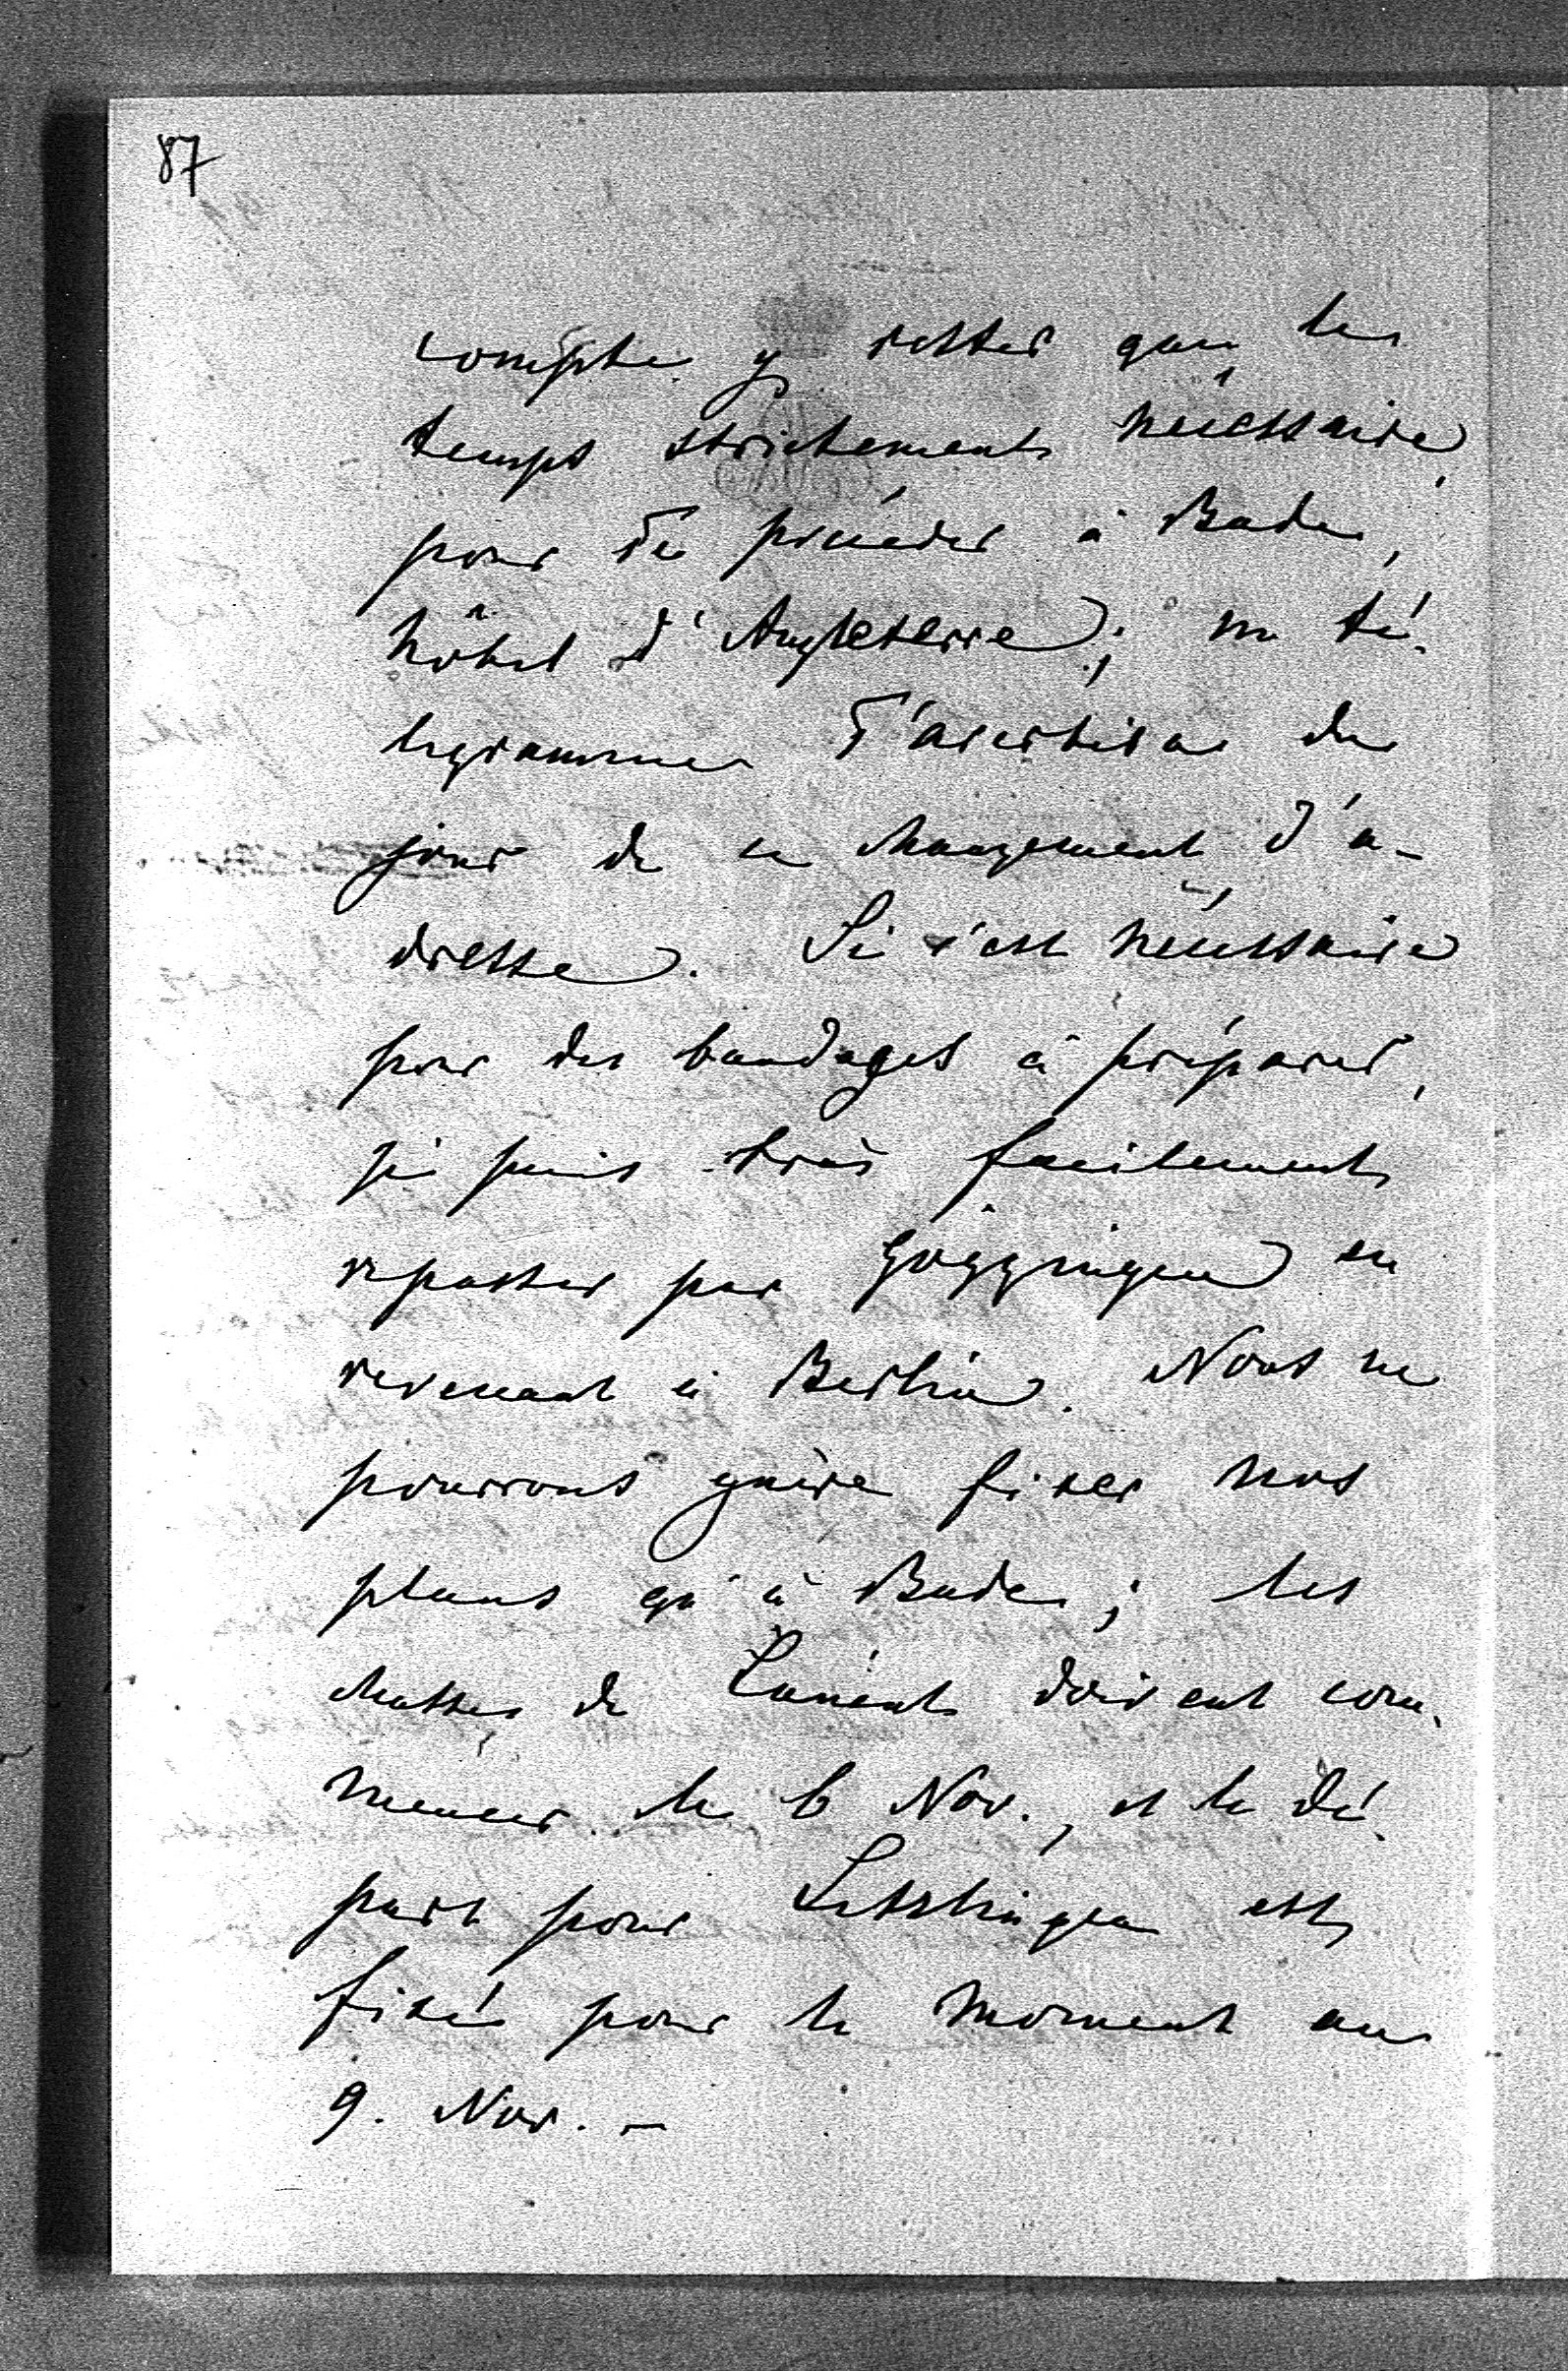 87
compte y rester que le
temps strictement nécessaire,
pour te précéder à Bade,
hôtel d'Angleterre; un té-
legramme t'avertira du
jour de ce changement d'a-
dresse. Si c'est nécessaire
pour des bandages à préparer,
je puis très facilement
repasser par Göggingen en
revenant à Berlin. Nous ne
pourrons guère fixer nos
plans qu'à Bade; les
chasses de doivent com-
mencer le 6 Nov., et le dé-
part pour Letzlingen est
fixé pour le moment au
9. Nov. –